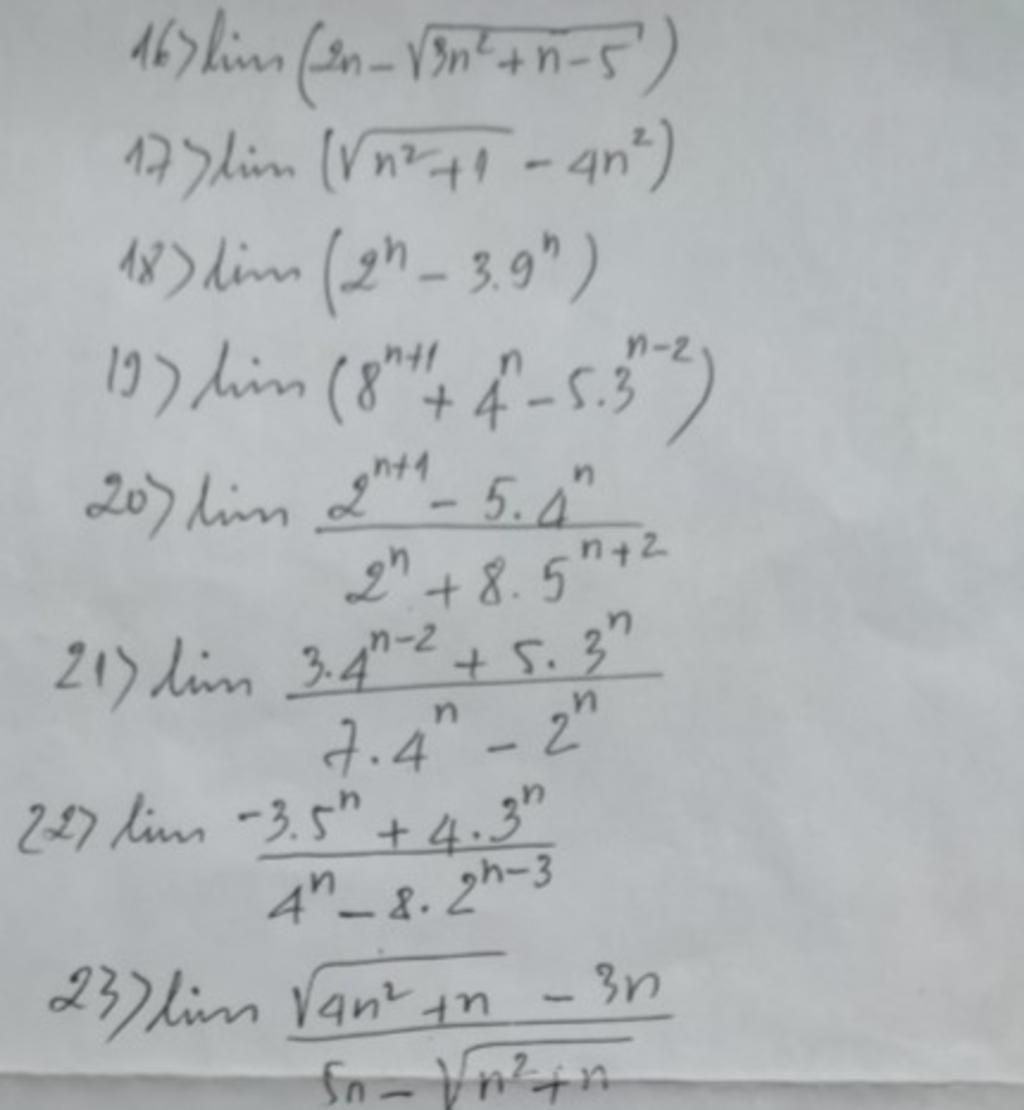 16> lim (2n - √(3n² + n - 5))
17> lim (√(n² + 1) - 4n²)
18> lim (2ⁿ - 3.9ⁿ)
19> lim (8ⁿ⁺¹ + 4ⁿ - 5.3ⁿ⁻²)
20> lim (2ⁿ⁺¹ - 5.4ⁿ) / (2ⁿ + 8.5ⁿ⁺²)
21> lim (3.4ⁿ⁻² + 5.3ⁿ) / (7.4ⁿ - 2ⁿ)
22> lim (-3.5ⁿ + 4.3ⁿ) / (4ⁿ - 8.2ⁿ⁻³)
23> lim (√(4n² + n) - 3n) / (5n - √(n² + n))